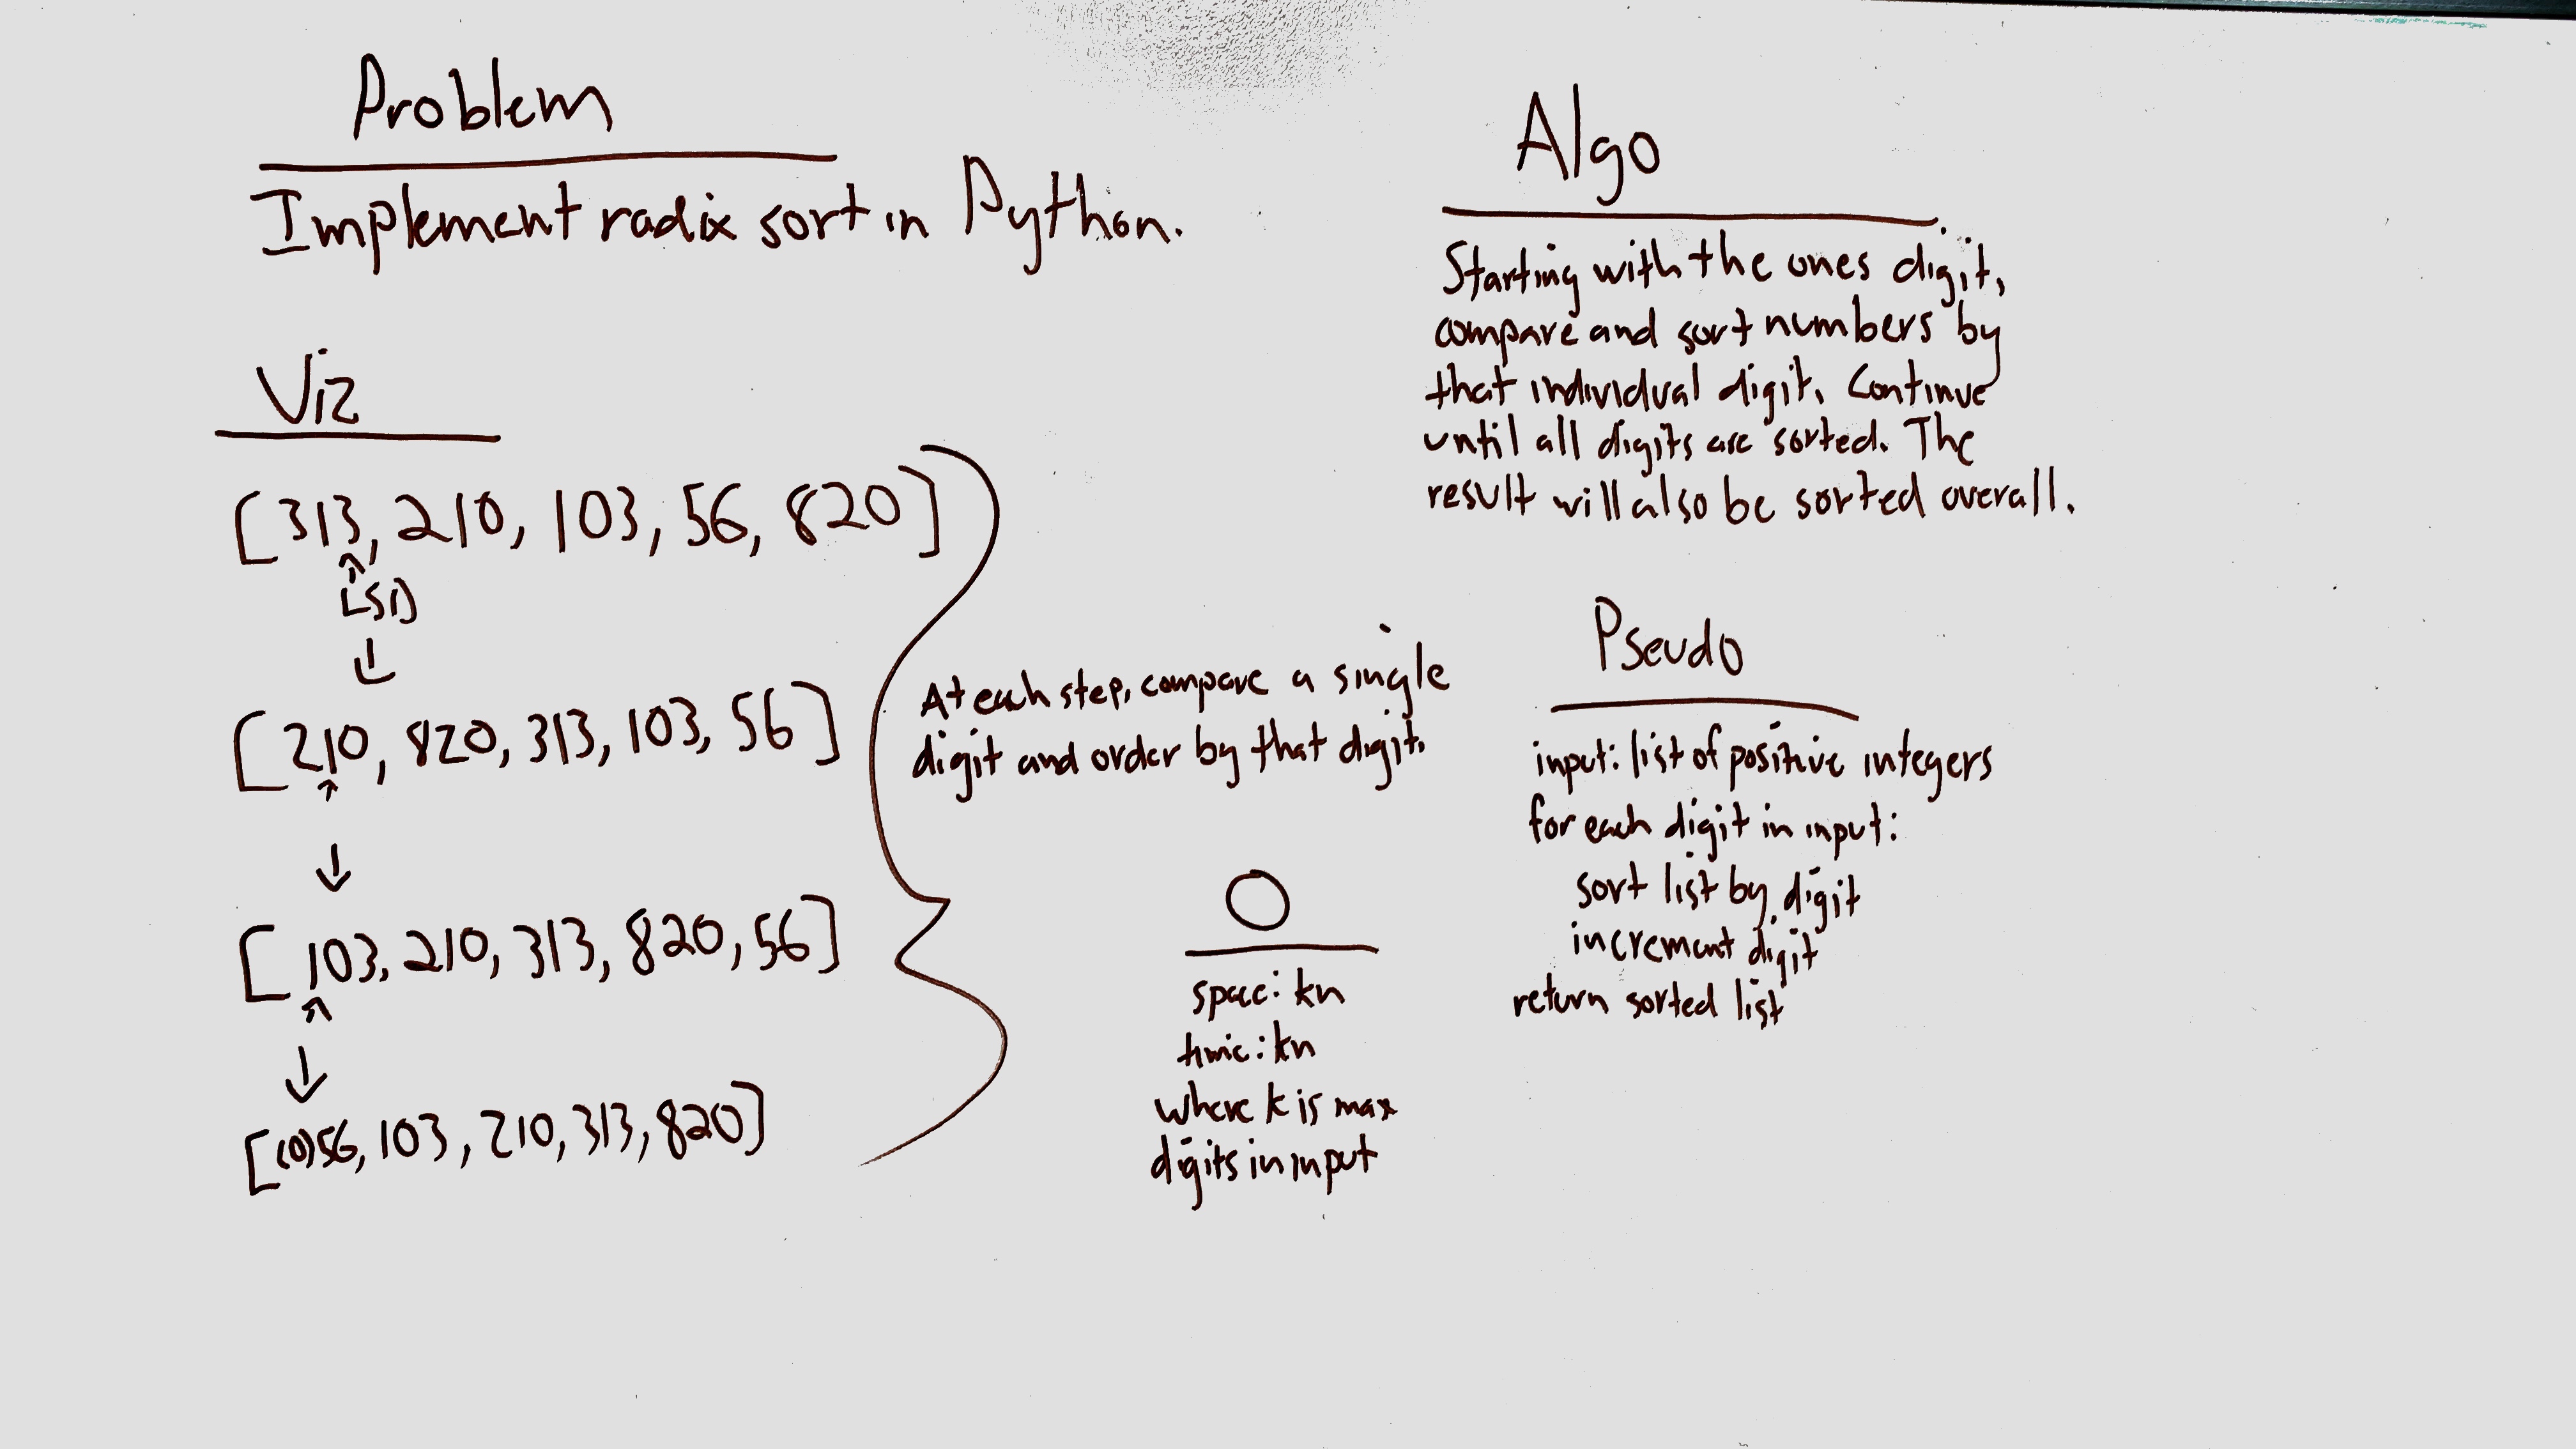 Problem
Implement radix sort in Python.
Viz
[313, 210, 103, 56, 820]
LSD
[210, 820, 313, 103, 56]
[103, 210, 313, 820, 56]
[(0)56, 103, 210, 313, 820]
At each step, compare a single
digit and order by that digit.
O
space: kn
time: kn
where k is max
digits in input
Algo
Starting with the ones digit,
compare and sort numbers by
that individual digit. Continue
until all digits are sorted. The
result will also be sorted overall.
Pseudo
input: list of positive integers
for each digit in input:
sort list by digit
increment digit
return sorted list